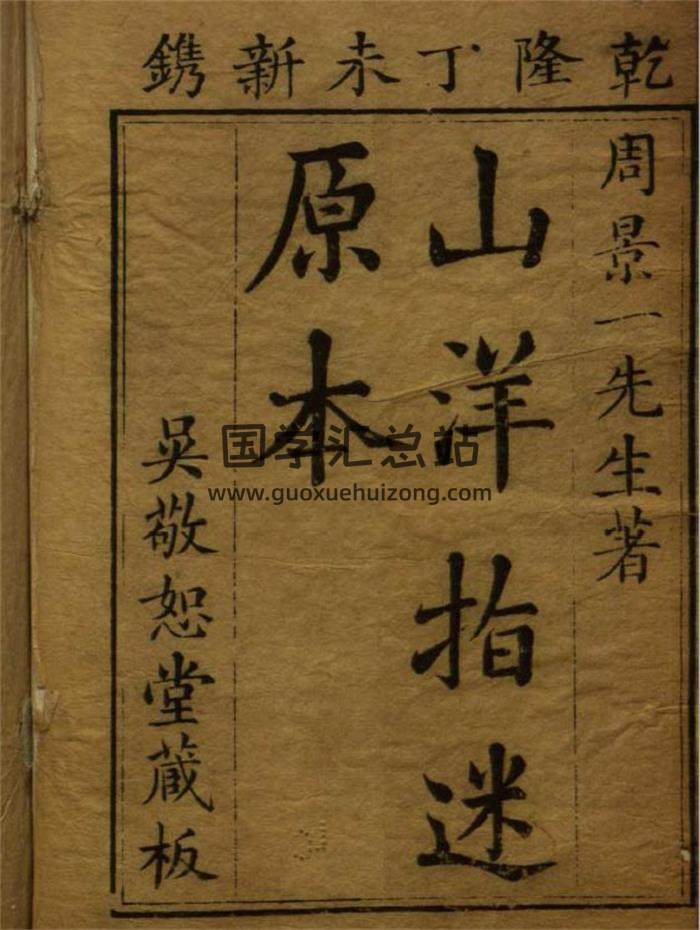 乾隆丁未新鐫
周景一先生著
山洋指迷
原本
吳敬恕堂蔵板
国学汇总站
www.guoxuehuizong.com